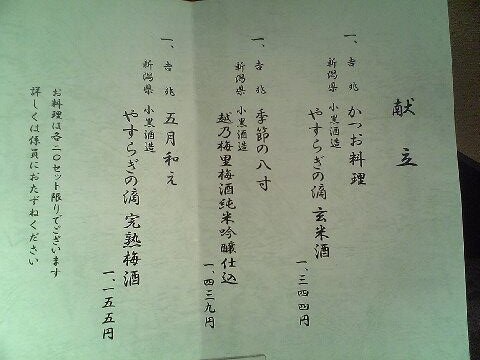 献立
一、吉兆 かつお料理
新潟県 小黒酒造
やすらぎの滴 玄米酒
一、三四四円
一、吉兆 季節の八寸
新潟県 小黒酒造
越乃梅里梅酒純米吟醸仕込
一、四三九円
一、吉兆 五月和え
新潟県 小黒酒造
やすらぎの滴 完熟梅酒
一、一五五円
お料理は各二〇セット限りでございます
詳しくは係員におたずねください